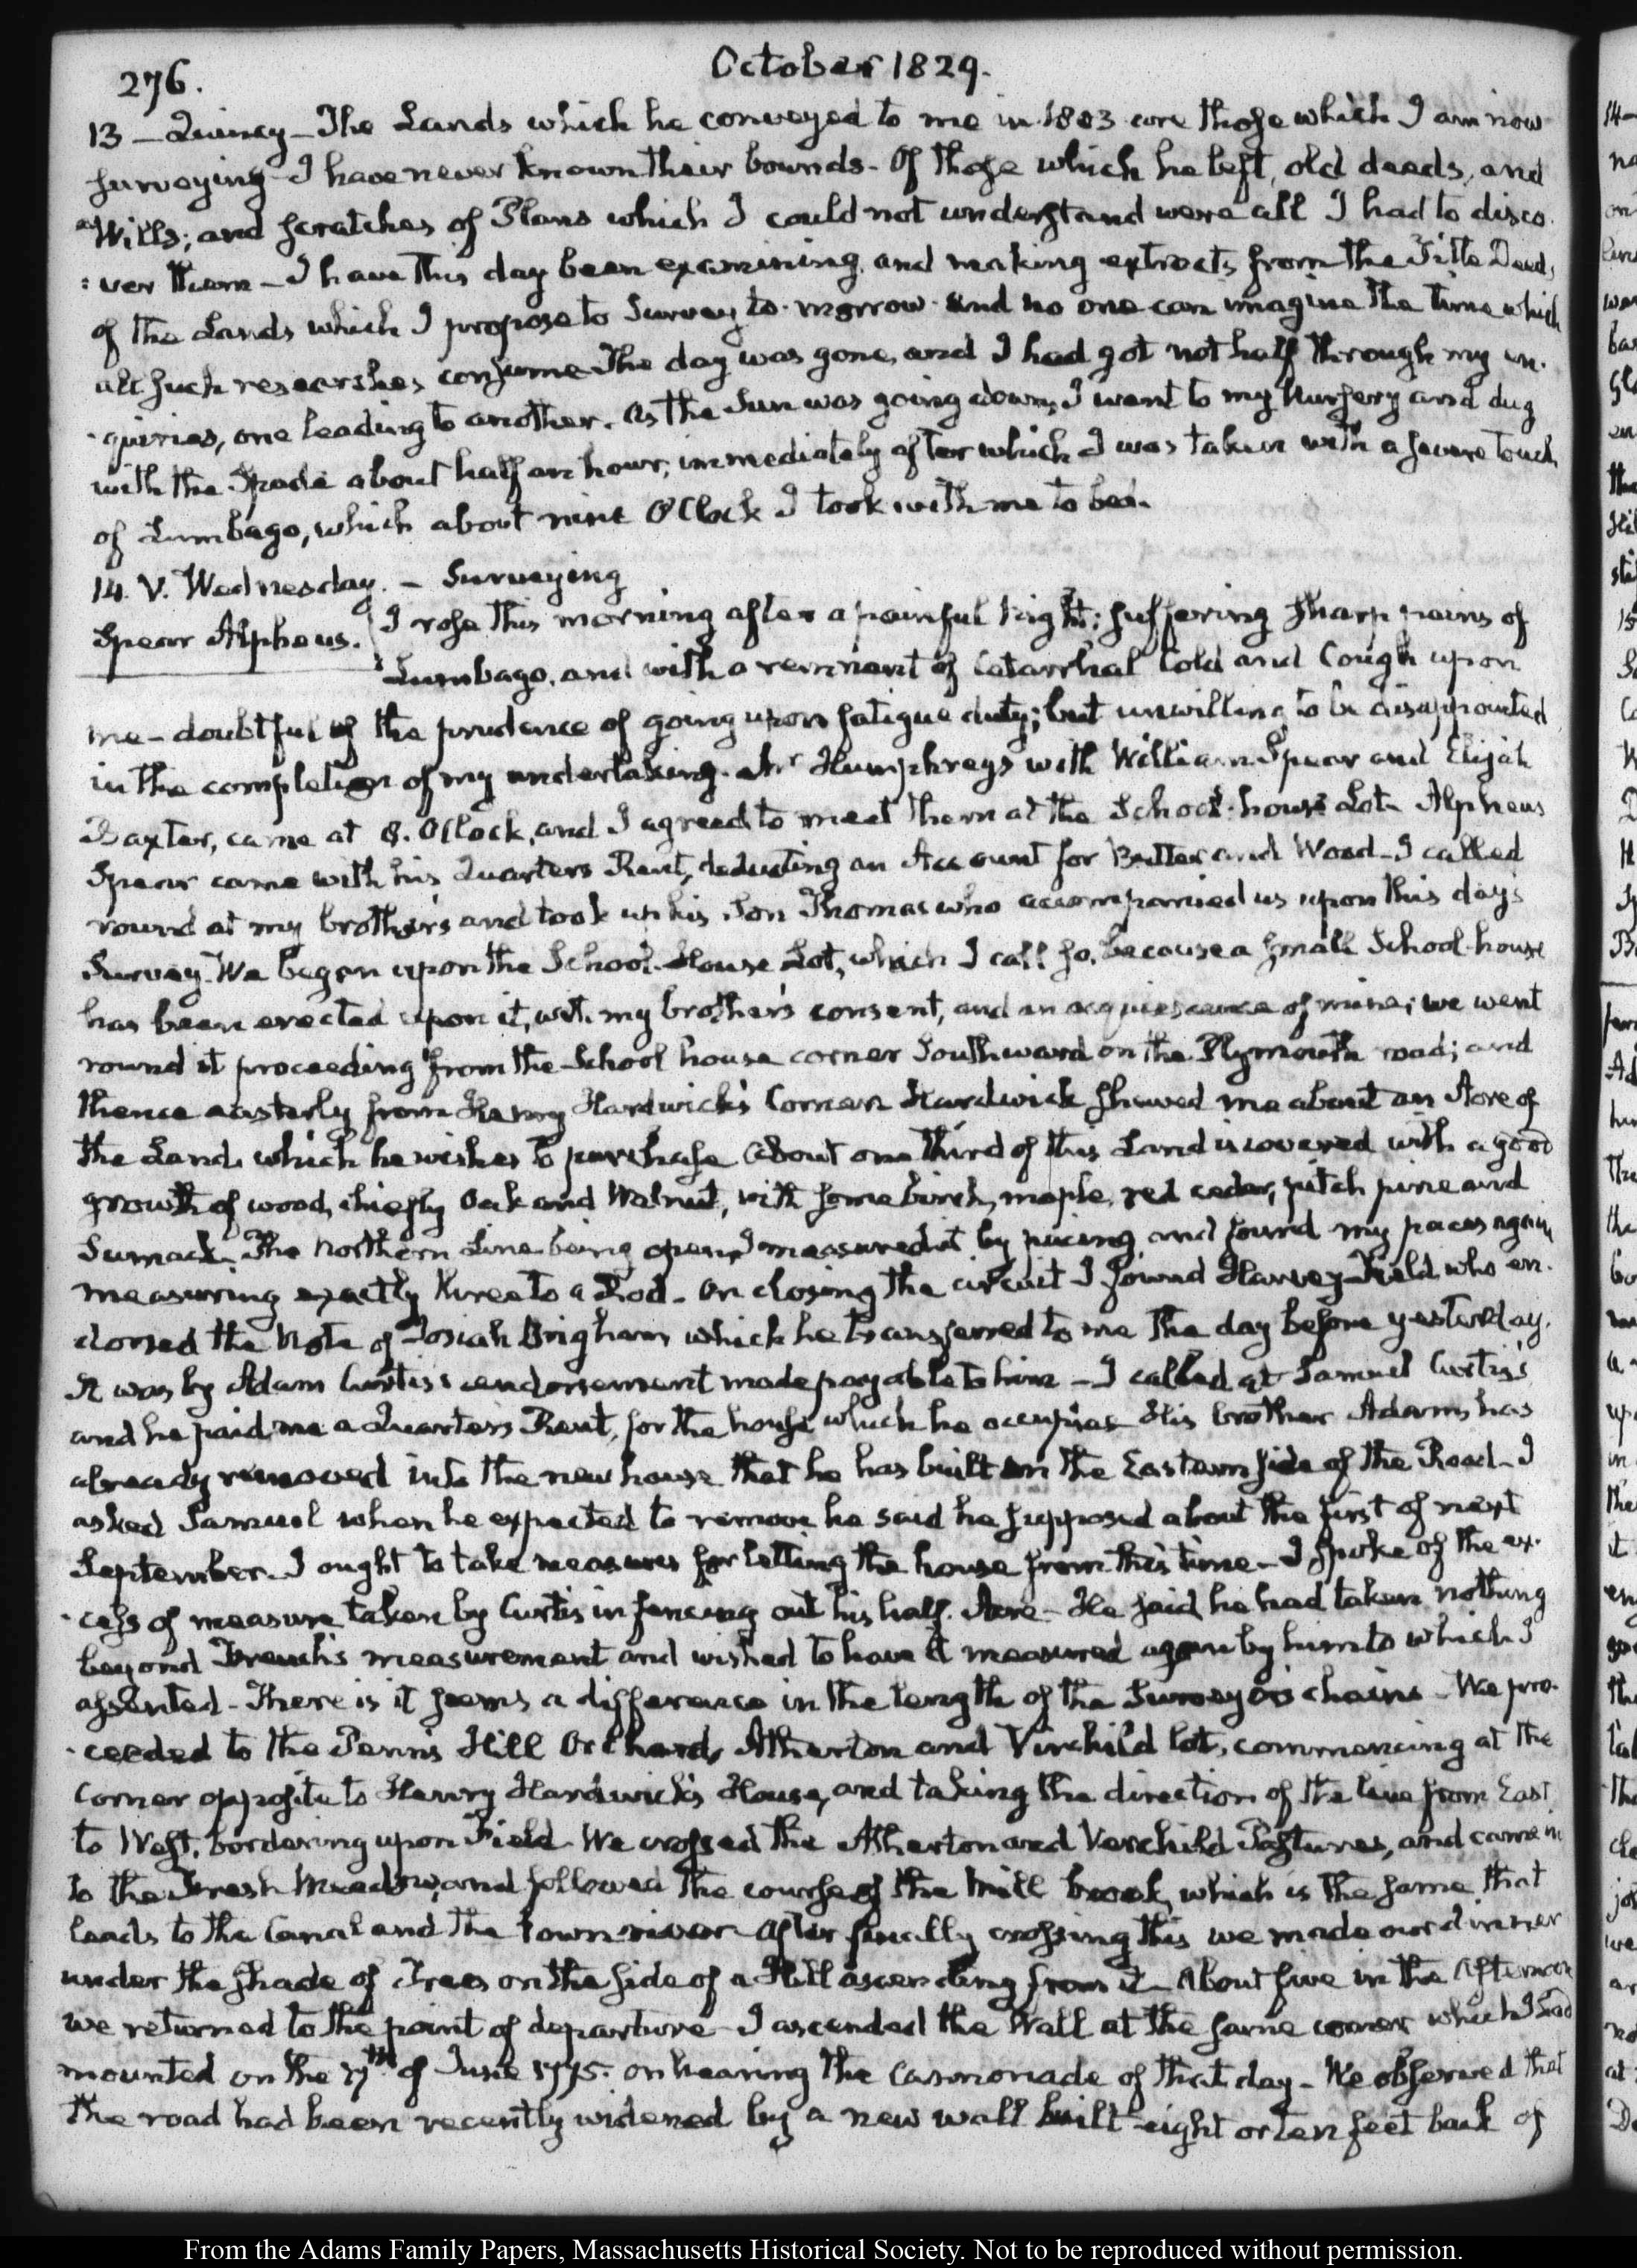 276.
October 1829.
13 — Quincy — The Lands which he conveyed to me in 1803 were those which I am now
surveying — I have never known their bounds - Of those which he left, old deeds, and
Wills; and scratches of Plans which I could not understand were all I had to disco-
:ver them — I have this day been examining and making extracts from the Title Deeds
of the Lands which I propose to Survey to-morrow - and no one can imagine the time which
all such researches consume The day was gone, and I had got not half through my en-
-quiries, one leading to another. As the Sun was going down, I went to my Nursery and dug
with the Spade about half an hour; immediately after which I was taken with a severe touch
of Lumbago, which about nine O'Clock I took with me to bed.
14. V. Wednesday. — Surveying
Spear Alpheus.
I rose this morning after a painful Night; suffering sharp pains of
Lumbago, and with a remnant of Catarrhal Cold and Cough upon
me - doubtful of the prudence of going upon fatigue duty; but unwilling to be disappointed
in the completion of my undertaking. Mr Humphreys with William Spear and Elijah
Baxter, came at 8. O'Clock, and I agreed to meet them at the School-house Lot. Alpheus
Spear came with his Quarters Rent, deducting an Account for Butter and Wood - I called
round at my brother's and took up his Son Thomas who accompanied us upon this day's
Survey. We began upon the School-House Lot, which I call so, because a small School-house
has been erected upon it, with my brother's consent, and an acquiescence of mine; we went
round it proceeding from the School house corner Southward on the Plymouth road; and
thence easterly from Henry Hardwick's Corner Hardwick shewed me about an Acre of
the Land which he wishes to purchase About one third of this Land is covered with a good
growth of wood, chiefly Oak and Walnut, with some birch, maple, red cedar, pitch pine and
Sumack. The Northern Line being open, I measured it by pacing and found my paces again
measuring exactly three to a Rod - On closing the circuit I found Harvey Field who en-
dorsed the Note of Josiah Brigham which he transferred to me the day before yesterday.
It was by Adam Curtis's endorsement made payable to him — I called at Samuel Curtis's
and he paid me a Quarters Rent, for the house which he occupies His brother Adam, has
already removed into the new house that he has built on the Eastern side of the Road - I
asked Samuel when he expected to remove he said he supposed about the first of next
September. I ought to take measures for letting the house from this time - I spoke of the ex-
-cess of measure taken by Curtis in fencing out his half Acre - He said he had taken nothing
beyond French's measurement and wished to have it measured again by him to which I
assented - There is it seems a difference in the length of the Surveyors chains - We pro-
-ceeded to the Penn's Hill Orchard, Atherton and Virchild lot, commencing at the
Corner opposite to Henry Hardwick's House, and taking the direction of the line from East
to West, bordering upon Field. We crossed the Atherton and Verchild Pastures, and came in
to the Fresh Meadow, and followed the course of the Mill brook, which is the same that
leads to the Canal and the town river After finally crossing this we made our dinner
under the shade of Trees on the side of a Hill ascending from it - About five in the Afternoon
we returned to the point of departure - I ascended the Wall at the same corner which I had
mounted on the 17th of June 1775. on hearing the Cannonade of that day - We observed that
the road had been recently widened by a new wall built eight or ten feet back of
From the Adams Family Papers, Massachusetts Historical Society. Not to be reproduced without permission.